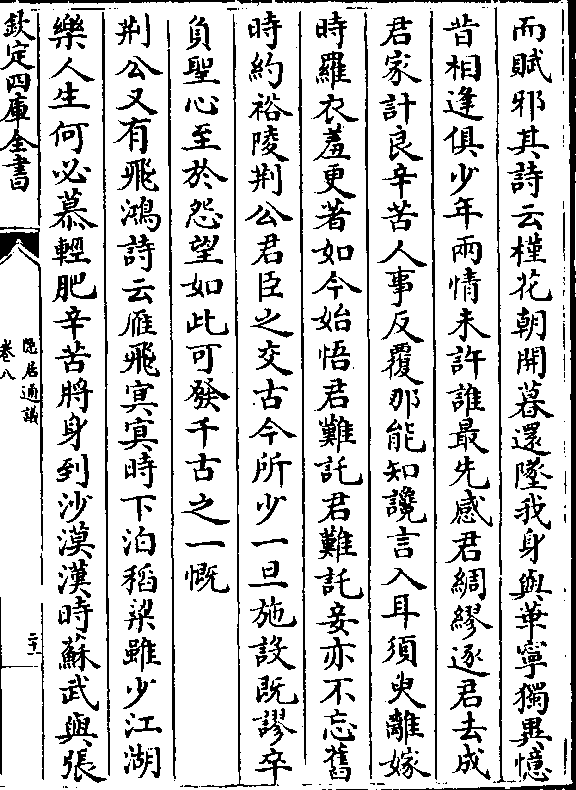 而賦邪其詩云槿花朝開暮還墜我身與華寧獨異憶
昔相逢俱少年兩情未許誰最先感君綢繆逐君去成
君家計良辛苦人事反覆那能知讒言入耳須臾離嫁
時羅衣羞更著如今始悟君難託君難託妾亦不忘舊
時約裕陵荆公君臣之交古今所少一旦施設既謬卒
負聖心至於怨望如此可發千古之一慨
荆公又有飛鴻詩云雁飛㝠㝠時下泊稻粱雖少江湖
樂人生何必慕輕肥辛苦將身到沙漠漢時蘇武與張
欽定四庫全書
隠居通議
卷八
二十